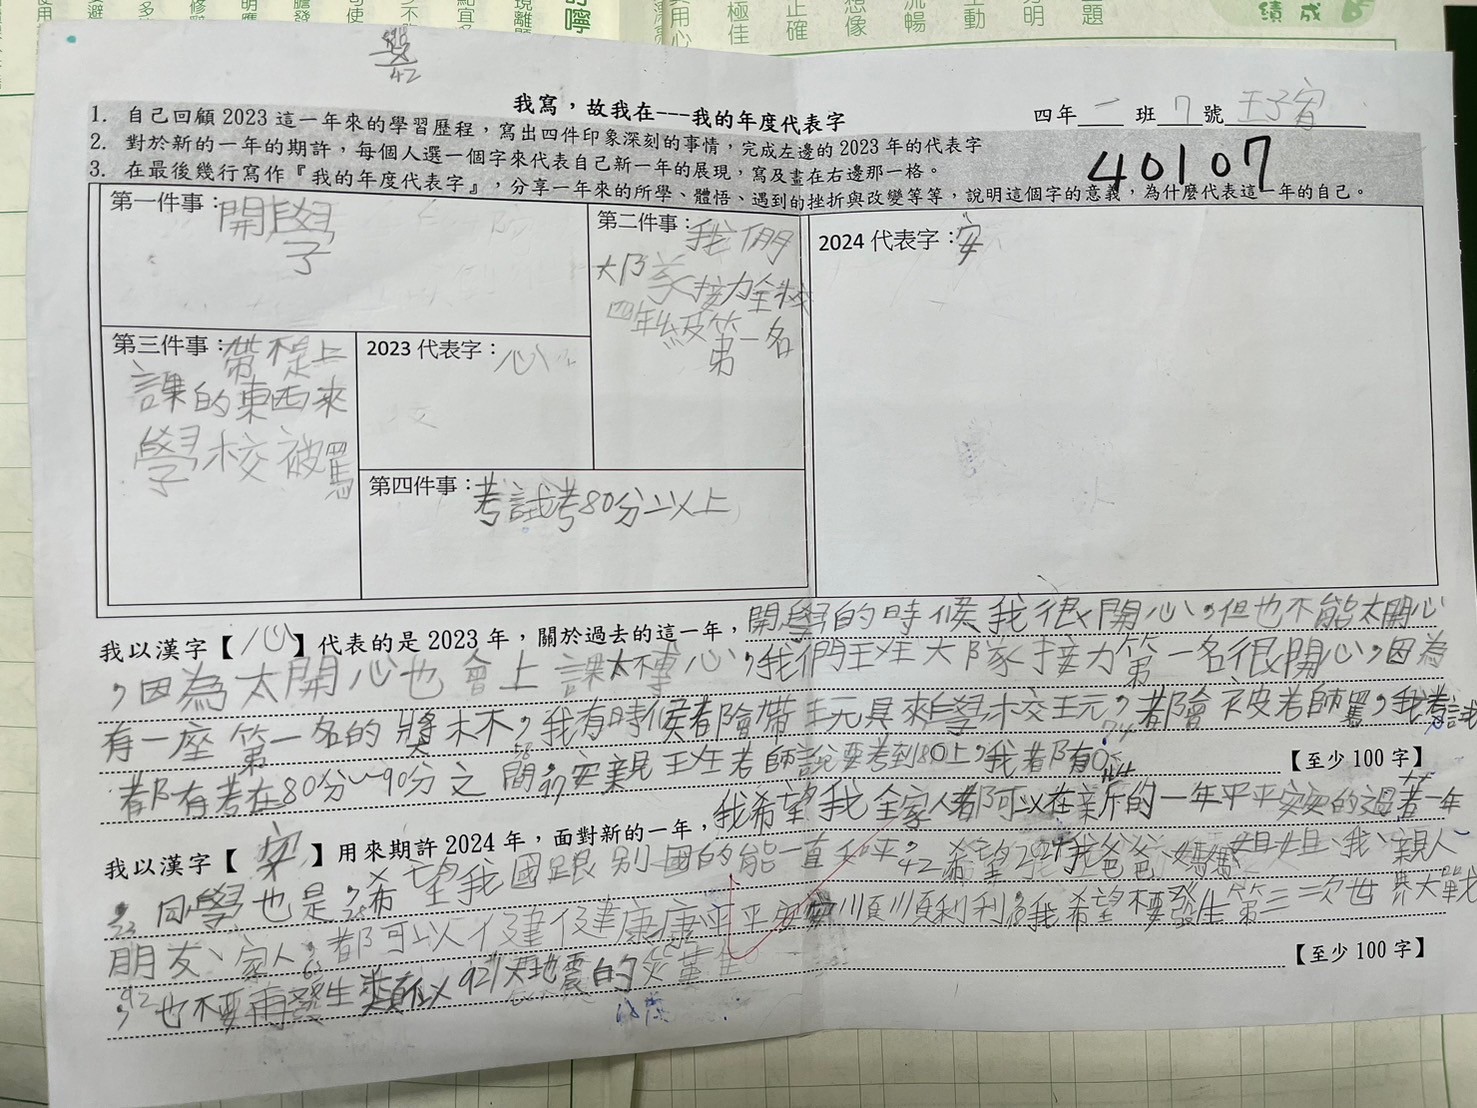 績 成
極佳
正確
想像
流暢
生動
分明
主題
雙
42
我寫，故我在---我的年度代表字
四年 一 班 7 號 王子宥
40107
1. 自己回顧 2023 這一年來的學習歷程，寫出四件印象深刻的事情，完成左邊的 2023 年的代表字
2. 對於新的一年的期許，每個人選一個字來代表自己新一年的展現，寫及畫在右邊那一格。
3. 在最後幾行寫作『我的年度代表字』，分享一年來的所學、體悟、遇到的挫折與改變等等，說明這個字的意義，為什麼代表這一年的自己。
第一件事：開學
第二件事：我們
大隊接力全校
四年級第一名
2024 代表字：安
第三件事：帶不是上
課的東西來
學校被罵
2023 代表字：心
第四件事：考試考80分以上
我以漢字【心】代表的是 2023 年，關於過去的這一年，開學的時候我很開心，但也不能太開心
，因為太開心也會上課太專心，我們班大隊接力第一名很開心，因為
有一座第一名的獎杯，我有時候都會帶玩具來學校玩，都會被老師罵，我考試
都有考在80分~90分之間，安親班老師說要考到80上，我都有。
【至少 100 字】
我以漢字【安】用來期許 2024 年，面對新的一年，我希望我全家人都可以在新的一年平平安安的過著一年
，同學也是，希望我國跟別國的能一直和平，希望2024我爸爸、媽媽、姐姐、我、親人、
朋友、家人，都可以健健康康平平安安順順利利，我希望不要發生第三次世界大戰
，也不要再發生類似921大地震的災難
【至少 100 字】